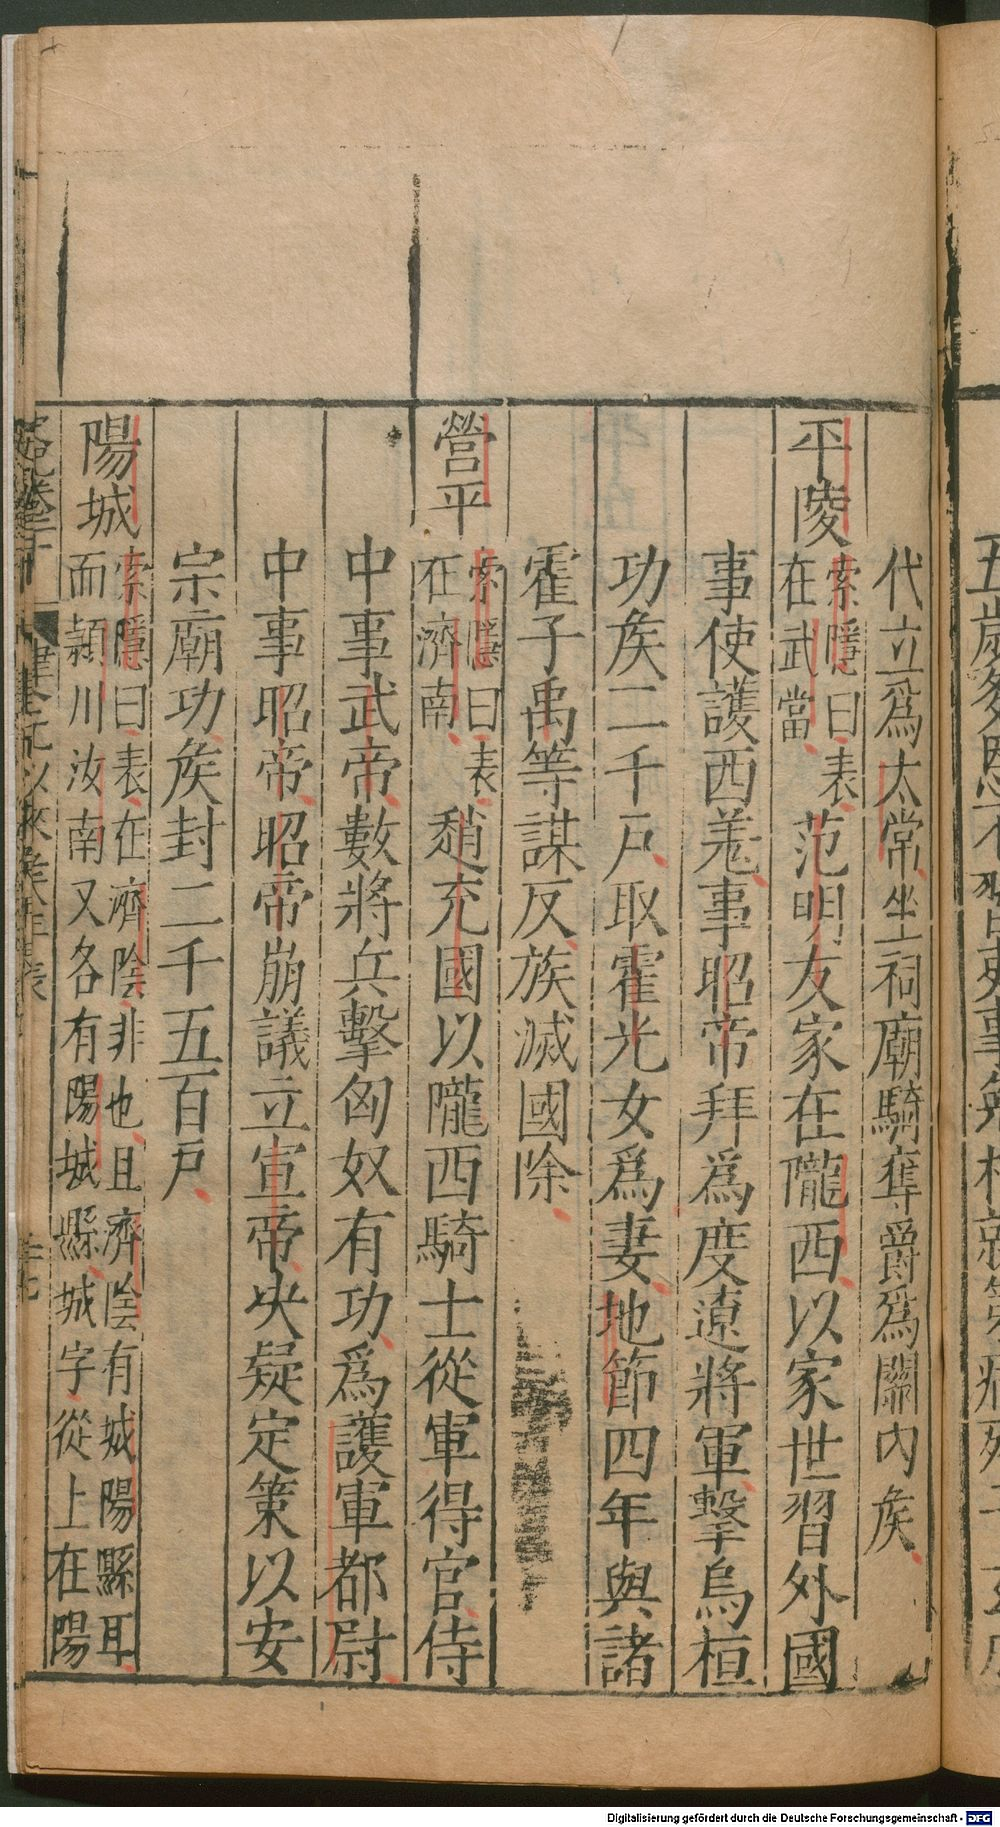 代立爲太常坐祠廟騎奪爵爲關內矦
平陵 索隱曰表在武當 范明友家在隴西以家世習外國
事使護西羗事昭帝拜爲度遼將軍擊烏桓
功矦二千戶取霍光女爲妻地節四年與諸
霍子禹等謀反族滅國除
營平 索隱曰表在濟南 趙充國以隴西騎士從軍得官侍
中事武帝數將兵擊匈奴有功爲護軍都尉侍
中事昭帝昭帝崩議立宣帝決疑定策以安
宗廟功矦封二千五百戶
陽城 索隱曰表在濟陰非也且濟陰有城陽縣耳
而潁川汝南又各有陽城縣城字從上在陽
Digitalisierung gefördert durch die Deutsche Forschungsgemeinschaft - DFG